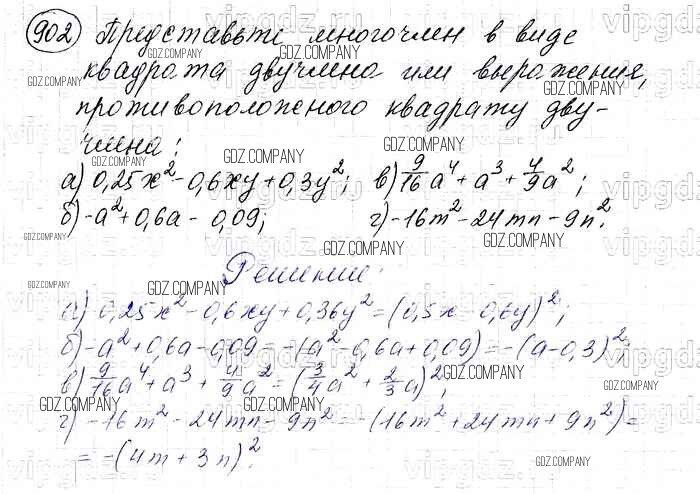 902 Представьте многочлен в виде
квадрата двучлена или выражения,
противоположного квадрату дву-
члена:
а) 0,25x² - 0,6xy + 0,3y²; в) 9/16 a⁴ + a³ + 4/9 a²;
б) -a² + 0,6a - 0,09; г) -16m² - 24mn - 9n².
Решение:
а) 0,25x² - 0,6xy + 0,36y² = (0,5x - 0,6y)²;
б) -a² + 0,6a - 0,09 = -(a² - 0,6a + 0,09) = -(a - 0,3)²;
в) 9/16 a⁴ + a³ + 4/9 a² = (3/4 a² + 2/3 a)²;
г) -16m² - 24mn - 9n² = -(16m² + 24mn + 9n²) =
= -(4m + 3n)².
GDZ.COMPANY
vipgdz.ru